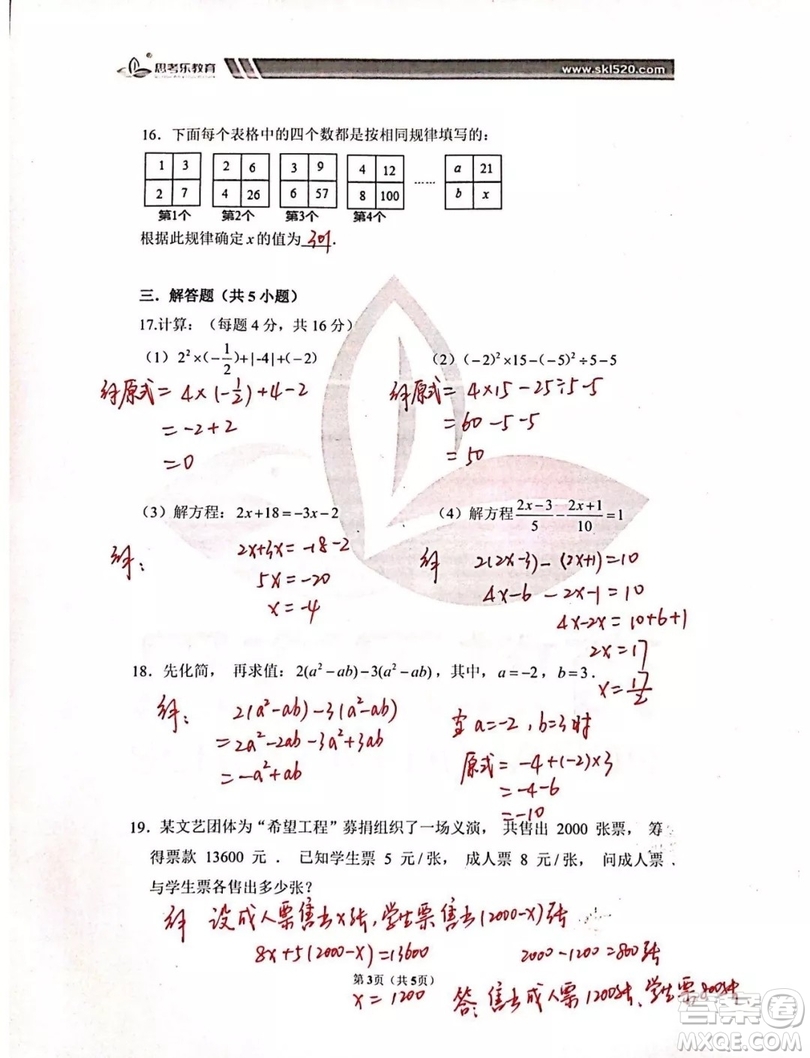 思考乐教育
www.skl520.com
16．下面每个表格中的四个数都是按相同规律填写的：
1 3 2 6 3 9 4 12 …… a 21
2 7 4 26 6 57 8 100 b x
第1个 第2个 第3个 第4个
根据此规律确定 x 的值为 301 .
三．解答题（共 5 小题）
17.计算：（每题 4 分，共 16 分）
（1）2²×(-1/2)+|-4|+(-2)
（2）(-2)²×15-(-5)²÷5-5
解原式= 4×(-1/2)+4-2
= -2+2
= 0
解原式= 4×15-25÷5-5
= 60-5-5
= 50
（3）解方程：2x+18=-3x-2
（4）解方程 (2x-3)/5 - (2x+1)/10 =1
解： 2x+3x=-18-2
5x=-20
x=-4
解 2(2x-3)-(2x+1)=10
4x-6-2x-1=10
4x-2x=10+6+1
2x=17
x=17/2
18．先化简， 再求值：2(a²-ab)-3(a²-ab)，其中，a=-2，b=3．
解： 2(a²-ab)-3(a²-ab)
=2a²-2ab-3a²+3ab
=-a²+ab
当a=-2，b=3时
原式=-4+(-2)×3
=-4-6
=-10
19．某文艺团体为“希望工程”募捐组织了一场义演， 共售出 2000 张票， 筹
得票款 13600 元 ． 已知学生票 5 元/张， 成人票 8 元/张， 问成人票
与学生票各售出多少张？
解 设成人票售出x张，学生票售出(2000-x)张
8x+5(2000-x)=13600
2000-1200=800张
第 3页（共 5页）
x=1200
答：售出成人票1200张、学生票800张
答案圈
MXQE.COM